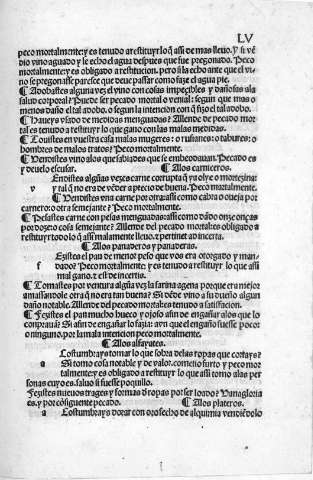 LV
peco mortalmente;y es tenudo a restituyr lo q̃ assi de mas lleuo.Y si vẽ
dio vino aguado y le echo el agua despues que fue pregonado. Peco
mortalmente:y es obligado a restitucion. pero si la echo ante que el vi-
no se pregonasse paresce que deue passar como faze el agua pie.
¶ Adobastes alguna vez el vino con cosas impecibles y dañosas ala
salud corporal? Puede ser pecado mortal o venial: segun que mas o
menos daño el tal adobo.o segun la intencion con q̃ fizo el tal adobo.
¶ Haueys vsado de medidas menguadas? Allende de pecado mor
tal es tenudo a restituyr lo que gano con las malas medidas.
¶ Touistes en vuestra casa malas mugeres: o rufianes: o tahures: o
hombres de malos tratos? Peco mortalmente.
¶ Vendistes vino alos que sabiades que se embeodauan. Pecado es
y deuelo escusar. ¶ Alos carniceros.
Endistes algũas vezes carne corrupta q̃ ya olye o mortezina:
v y tal q̃ no era de vẽder a precio de buena. Peco mortalmente.
¶ Vendistes vna carne por otra: assi como cabra o oueja por
carnero: o otra semejante? Peco mortalmente.
¶ Pesastes carne con pesas menguadas: assi como dãdo onze onças
por doze: o cosa semejante? Allende del pecado mortal es obligado a
restituyr todo lo q̃ assi malamente lleuo. z pertinet ad incerta.
¶ Alos panaderos y panaderas.
Ezistes el pan de menor peso que vos era otorgado y man-
f dado? Peco mortalmente: y es tenudo a restituyr lo que assi
mal gano. z est de incertis.
¶ Tomastes por ventura algũa vez la farina agena porque era mejor
amassandole otra q̃ no era tan buena? Si dello vino a su dueño algun
daño notable. Allende del pecado mortal es tenudo a satisfacion.
¶ Fezistes el pan mucho hueco y ojoso afin de engañar alos que lo
comprauã? Si afin de engañar lo fazia: avn que el engaño fuesse poco:
o ninguno. por la mala intencion peco mortalmente.
¶ Alos alfayates.
Costumbrays tomar lo que sobra delas ropas que cortays?
a Si tomo cosa notable y de valor. cometio furto y peco mor
talmente: y es obligado a restituyr lo que assi tomo alas per
sonas cuyo es. saluo si fuesse poquillo.
Fezistes nueuos trages y formas d̃ ropas por ser loado? Vanagloria
es. y por cõsiguiente pecado. ¶ Alos plateros.
a Costumbrays dorar con oro secho de alquimia vendiẽdolo